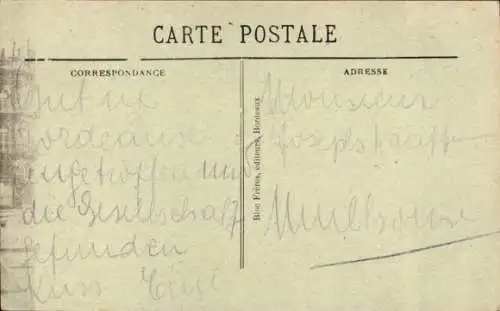 CARTE POSTALE
CORRESPONDANCE
ADRESSE
Gut in
Bordeaux
eingetroffen und
die Gesellschaft
gefunden
Kuss
Monsieur
Joseph
Mulhouse
Bloc Frères, éditeurs, Bordeaux